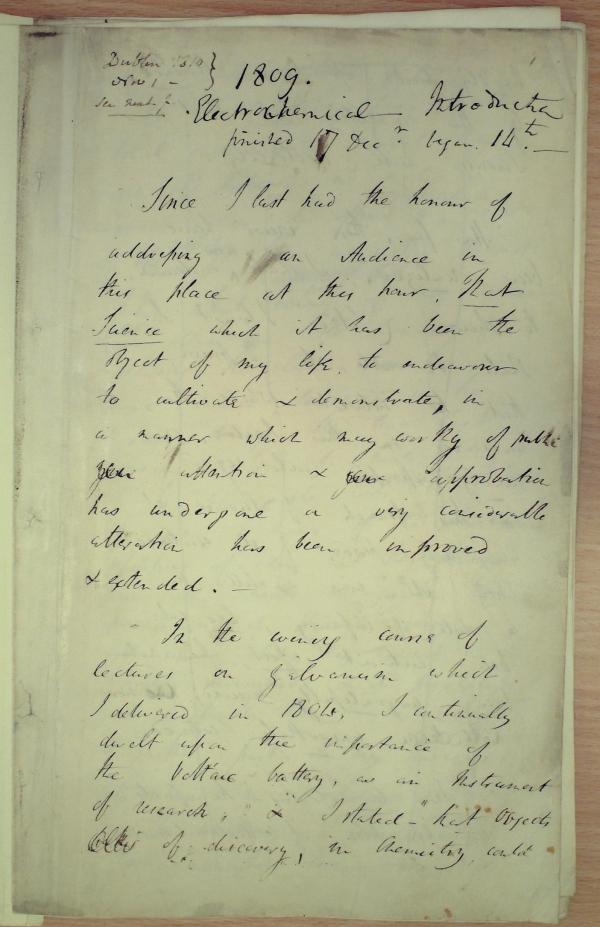 Dublin 1810
1809.
Electrochemical Introduction
finished 17 Decr. began. 14th. —
Since I last had the honour of
addressing an Audience in
this place at this hour. That
Science which it has been the
object of my life, to endeavour
to cultivate & demonstrate, in
a manner which may worthy of public
attention & approbation
has undergone a very considerable
alteration has been improved
& extended. —
In the evening course of
lectures on Galvanism which
I delivered in 1808, I continually
dwelt upon the importance of
the Voltaic battery, as an Instrument
of research, & I stated – "that Objects
of discovery, in Chemistry, could